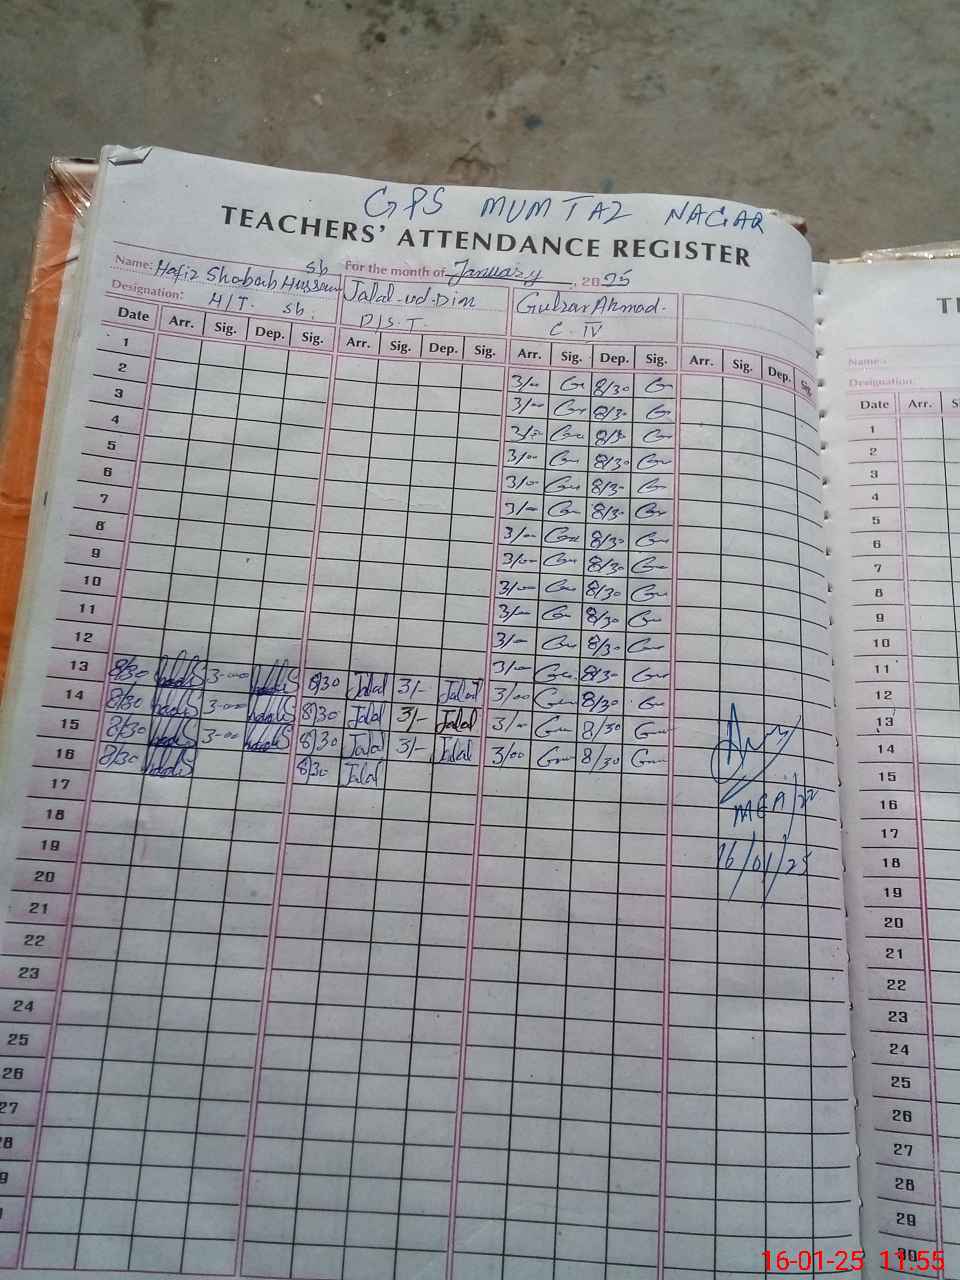 GPS MUMTAZ NAGAR
TEACHERS' ATTENDANCE REGISTER
Name: Hafiz Shabab Hussain sb For the month of January, 2025
Jalal-ud-Din Gulzar Ahmad.
Designation: H/T. sb. P.S.T. C-IV
Date Arr. Sig. Dep. Sig. Arr. Sig. Dep. Sig. Arr. Sig. Dep. Sig. Arr. Sig. Dep. Sig.
1
2 3/00 8/30
3 3/00 8/30
4 3/00 8/30
5 3/00 8/30
6 3/00 8/30
7 3/00 8/30
8 3/00 8/30
9 3/00 8/30
10 3/00 8/30
11 3/00 8/30
12 3/00 8/30
13 8/30 3-00 8/30 Jalal 3/- Jalal 3/00 8/30
14 8/30 3-00 8/30 Jalal 3/- Jalal 3/00 8/30
15 8/30 3-00 8/30 Jalal 3/- Jalal 3/00 8/30
16 8/30 8/30 Jalal 3/00 8/30
17
18
19
20
21
22
23
24
25
26
27
MEA/22
16/01/25
Name:
Designation:
Date Arr.
1
2
3
4
5
6
7
8
9
10
11
12
13
14
15
16
17
18
19
20
21
22
23
24
25
26
27
28
29
30
16-01-25 11:55